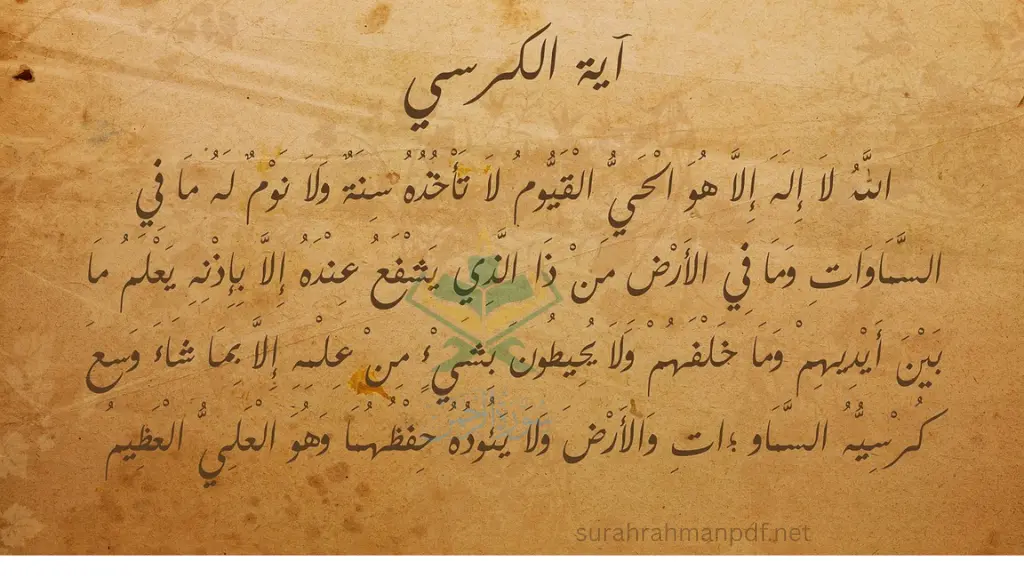 آية الكرسي
اللَّهُ لَا إِلَهَ إِلَّا هُوَ الْحَيُّ الْقَيُّومُ لَا تَأْخُذُهُ سِنَةٌ وَلَا نَوْمٌ لَهُ مَا فِي
السَّمَاوَاتِ وَمَا فِي الأَرْضِ مَنْ ذَا الَّذِي يَشْفَعُ عِنْدَهُ إِلَّا بِإِذْنِهِ يَعْلَمُ مَا
بَيْنَ أَيْدِيهِمْ وَمَا خَلْفَهُمْ وَلَا يُحِيطُونَ بِشَيْءٍ مِنْ عِلْمِهِ إِلَّا بِمَا شَاءَ وَسِعَ
كُرْسِيُّهُ السَّمَاو ءاتِ وَالأَرْضَ وَلَا يَئُودُهُ حِفْظُهُمَا وَهُوَ الْعَلِيُّ الْعَظِيمُ
surahrahmanpdf.net